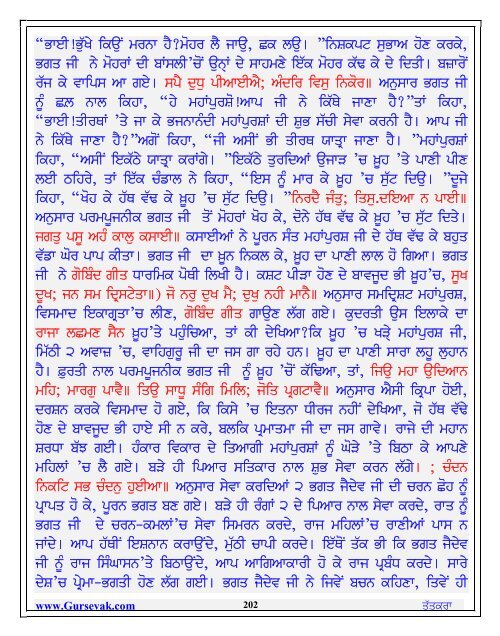 “ਭਾਈ!ਭੁੱਖੇ ਕਿਉਂ ਮਰਨਾ ਹੈ?ਮੋਹਰ ਲੈ ਜਾਉ, ਛਕ ਲਉ। ”ਨਿਸ਼ਕਪਟ ਸੁਭਾਅ ਹੋਣ ਕਰਕੇ,
ਭਗਤ ਜੀ ਨੇ ਮੋਹਰਾਂ ਦੀ ਬਾਂਸਲੀ’ਚੋਂ ਉਨ੍ਹਾਂ ਦੇ ਸਾਹਮਣੇ ਇੱਕ ਮੋਹਰ ਕੱਢ ਕੇ ਦੇ ਦਿਤੀ। ਬਜ਼ਾਰੋਂ
ਰੱਜ ਕੇ ਵਾਪਿਸ ਆ ਗਏ। ਸਪੈ ਦੁਧੁ ਪੀਆਈਐ; ਅੰਦਰਿ ਵਿਸੁ ਨਿਕੋਰ॥ ਅਨੁਸਾਰ ਭਗਤ ਜੀ
ਨੂੰ ਛਲ ਨਾਲ ਕਿਹਾ, “ਹੇ ਮਹਾਂਪੁਰਸ਼ੋ!ਆਪ ਜੀ ਨੇ ਕਿੱਥੇ ਜਾਣਾ ਹੈ?”ਤਾਂ ਕਿਹਾ,
“ਭਾਈ!ਤੀਰਥਾਂ ’ਤੇ ਜਾ ਕੇ ਭਜਨਾਨੰਦੀ ਮਹਾਂਪੁਰਸ਼ਾਂ ਦੀ ਸ਼ੁਭ ਸੱਚੀ ਸੇਵਾ ਕਰਨੀ ਹੈ। ਆਪ ਜੀ
ਨੇ ਕਿੱਥੇ ਜਾਣਾ ਹੈ?”ਅਗੋਂ ਕਿਹਾ, “ਜੀ ਅਸੀਂ ਭੀ ਤੀਰਥ ਯਾਤ੍ਰਾ ਜਾਣਾ ਹੈ। ”ਮਹਾਂਪੁਰਸ਼ਾਂ
ਕਿਹਾ, “ਅਸੀਂ ਇਕੱਠੇ ਯਾਤ੍ਰਾ ਕਰਾਂਗੇ। ”ਇਕੱਠੇ ਤੁਰਦਿਆਂ ਉਜਾੜ ’ਚ ਖੂਹ ’ਤੇ ਪਾਣੀ ਪੀਣ
ਲਈ ਠਹਿਰੇ, ਤਾਂ ਇੱਕ ਚੰਡਾਲ ਨੇ ਕਿਹਾ, “ਇਸ ਨੂੰ ਮਾਰ ਕੇ ਖੂਹ ’ਚ ਸੁੱਟ ਦਿਉ। ”ਦੂਜੇ
ਕਿਹਾ, “ਖੋਹ ਕੇ ਹੱਥ ਵੱਢ ਕੇ ਖੂਹ ’ਚ ਸੁੱਟ ਦਿਉ। ”ਨਿਰਦੈ ਜੰਤੁ; ਤਿਸੁ.ਦਇਆ ਨ ਪਾਈ॥
ਅਨੁਸਾਰ ਪਰਮਪੂਜਨੀਕ ਭਗਤ ਜੀ ਤੋਂ ਮੋਹਰਾਂ ਖੋਹ ਕੇ, ਦੋਨੇ ਹੱਥ ਵੱਢ ਕੇ ਖੂਹ ’ਚ ਸੁੱਟ ਦਿਤੇ।
ਜਗਤੁ ਪਸੂ ਅਹੰ ਕਾਲੁ ਕਸਾਈ॥ ਕਸਾਈਆਂ ਨੇ ਪੂਰਨ ਸੰਤ ਮਹਾਂਪੁਰਸ਼ ਜੀ ਦੇ ਹੱਥ ਵੱਢ ਕੇ ਬਹੁਤ
ਵੱਡਾ ਘੋਰ ਪਾਪ ਕੀਤਾ। ਭਗਤ ਜੀ ਦਾ ਖੂਨ ਨਿਕਲ ਕੇ, ਖੂਹ ਦਾ ਪਾਣੀ ਲਾਲ ਹੋ ਗਿਆ। ਭਗਤ
ਜੀ ਨੇ ਗੋਬਿੰਦ ਗੀਤ ਧਾਰਮਿਕ ਪੋਥੀ ਲਿਖੀ ਹੈ। ਕਸ਼ਟ ਪੀੜਾ ਹੋਣ ਦੇ ਬਾਵਜੂਦ ਭੀ ਖੂਹ’ਚ, ਸੂਖ
ਦੂਖ; ਜਨ ਸਮ ਦ੍ਰਿਸਟੇਤਾ॥) ਜੋ ਨਰੁ ਦੁਖ ਮੈ; ਦੁਖੁ ਨਹੀ ਮਾਨੈ॥ ਅਨੁਸਾਰ ਸਮਦ੍ਰਿਸ਼ਟ ਮਹਾਂਪੁਰਸ਼,
ਵਿਸਮਾਦ ਇਕਾਗ੍ਰਤਾ’ਚ ਲੀਣ, ਗੋਬਿੰਦ ਗੀਤ ਗਾਉਣ ਲੱਗ ਗਏ। ਕੁਦਰਤੀ ਉਸ ਇਲਾਕੇ ਦਾ
ਰਾਜਾ ਲਛਮਣ ਸੈਨ ਖੂਹ’ਤੇ ਪਹੁੰਚਿਆ, ਤਾਂ ਕੀ ਦੇਖਿਆ?ਕਿ ਖੂਹ ’ਚ ਖੜ੍ਹੇ ਮਹਾਂਪੁਰਸ਼ ਜੀ,
ਮਿੱਠੀ ੨ ਅਵਾਜ਼ ’ਚ, ਵਾਹਿਗੁਰੂ ਜੀ ਦਾ ਜਸ ਗਾ ਰਹੇ ਹਨ। ਖੂਹ ਦਾ ਪਾਣੀ ਸਾਰਾ ਲਹੂ ਲੁਹਾਨ
ਹੈ। ਫ਼ੁਰਤੀ ਨਾਲ ਪਰਮਪੂਜਨੀਕ ਭਗਤ ਜੀ ਨੂੰ ਖੂਹ ’ਚੋਂ ਕੱਢਿਆ, ਤਾਂ, ਜਿਉ ਮਹਾ ਉਦਿਆਨ
ਮਹਿ; ਮਾਰਗੁ ਪਾਵੈ॥ ਤਿਉ ਸਾਧੂ ਸੰਗਿ ਮਿਲਿ; ਜੋਤਿ ਪ੍ਰਗਟਾਵੈ॥ ਅਨੁਸਾਰ ਐਸੀ ਕ੍ਰਿਪਾ ਹੋਈ,
ਦਰਸ਼ਨ ਕਰਕੇ ਵਿਸਮਾਦ ਹੋ ਗਏ, ਕਿ ਕਿਸੇ ’ਚ ਇਤਨਾ ਧੀਰਜ ਨਹੀਂ ਦੇਖਿਆ, ਜੋ ਹੱਥ ਵੱਢੇ
ਹੋਣ ਦੇ ਬਾਵਜੂਦ ਭੀ ਹਾਏ ਸੀ ਨ ਕਰੇ, ਬਲਕਿ ਪ੍ਰਮਾਤਮਾ ਜੀ ਦਾ ਜਸ ਗਾਵੇ। ਰਾਜੇ ਦੀ ਮਹਾਨ
ਸ਼ਰਧਾ ਬੱਝ ਗਈ। ਹੰਕਾਰ ਵਿਕਾਰ ਦੇ ਤਿਆਗੀ ਮਹਾਂਪੁਰਸ਼ਾਂ ਨੂੰ ਘੋੜੇ ’ਤੇ ਬਿਠਾ ਕੇ ਆਪਣੇ
ਮਹਿਲਾਂ ’ਚ ਲੈ ਗਏ। ਬੜੇ ਹੀ ਪਿਆਰ ਸਤਿਕਾਰ ਨਾਲ ਸ਼ੁਭ ਸੇਵਾ ਕਰਨ ਲੱਗੇ। ; ਚੰਦਨ
ਨਿਕਟਿ ਸਭ ਚੰਦਨੁ ਹੁਈਆ॥ ਅਨੁਸਾਰ ਸੇਵਾ ਕਰਦਿਆਂ ੨ ਭਗਤ ਜੈਦੇਵ ਜੀ ਦੀ ਚਰਨ ਛੋਹ ਨੂੰ
ਪ੍ਰਾਪਤ ਹੋ ਕੇ, ਪੂਰਨ ਭਗਤ ਬਣ ਗਏ। ਬੜੇ ਹੀ ਰੰਗਾਂ ੨ ਦੇ ਪਿਆਰ ਨਾਲ ਸੇਵਾ ਕਰਦੇ, ਰਾਤ ਨੂੰ
ਭਗਤ ਜੀ ਦੇ ਚਰਨ-ਕਮਲਾਂ’ਚ ਸੇਵਾ ਸਿਮਰਨ ਕਰਦੇ, ਰਾਜ ਮਹਿਲਾਂ’ਚ ਰਾਣੀਆਂ ਪਾਸ ਨ
ਜਾਂਦੇ। ਆਪ ਹੱਥੀਂ ਇਸ਼ਨਾਨ ਕਰਾਉਂਦੇ, ਮੁੱਠੀ ਚਾਪੀ ਕਰਦੇ। ਇੱਥੋਂ ਤੱਕ ਭੀ ਕਿ ਭਗਤ ਜੈਦੇਵ
ਜੀ ਨੂੰ ਰਾਜ ਸਿੰਘਾਸਨ’ਤੇ ਬਿਠਾਉਂਦੇ, ਆਪ ਆਗਿਆਕਾਰੀ ਹੋ ਕੇ ਰਾਜ ਪ੍ਰਬੰਧ ਕਰਦੇ। ਸਾਰੇ
ਦੇਸ਼’ਚ ਪ੍ਰੇਮਾ-ਭਗਤੀ ਹੋਣ ਲੱਗ ਗਈ। ਭਗਤ ਜੈਦੇਵ ਜੀ ਨੇ ਜਿਵੇਂ ਬਚਨ ਕਹਿਣਾ, ਤਿਵੇਂ ਹੀ
www.Gursevak.com 202 ਤੱਤਕਰਾ